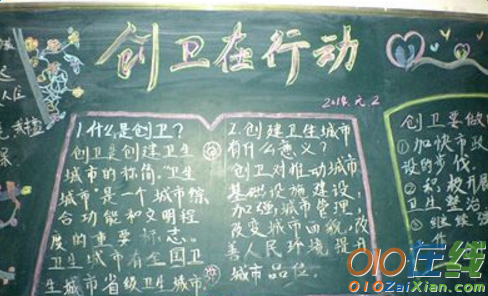 创卫在行动
2014.元.2
1.什么是创卫？
创卫是创建卫生
城市的称简，"卫生
城市"是一个城市综
合功能和文明程
度的重要标志。
卫生城市有全国卫
生城市省级卫生城市。
2.创建卫生城市
有什么意义？
创卫对推动城市
基础设施建设，
加强城市管理，
改变城市面貌，改
善人民环境提升
城市品位。
创卫要做
①加快市政
设的步伐。
②积极开展
卫生整治
③继续强
010在线
010ZaiXian.Com